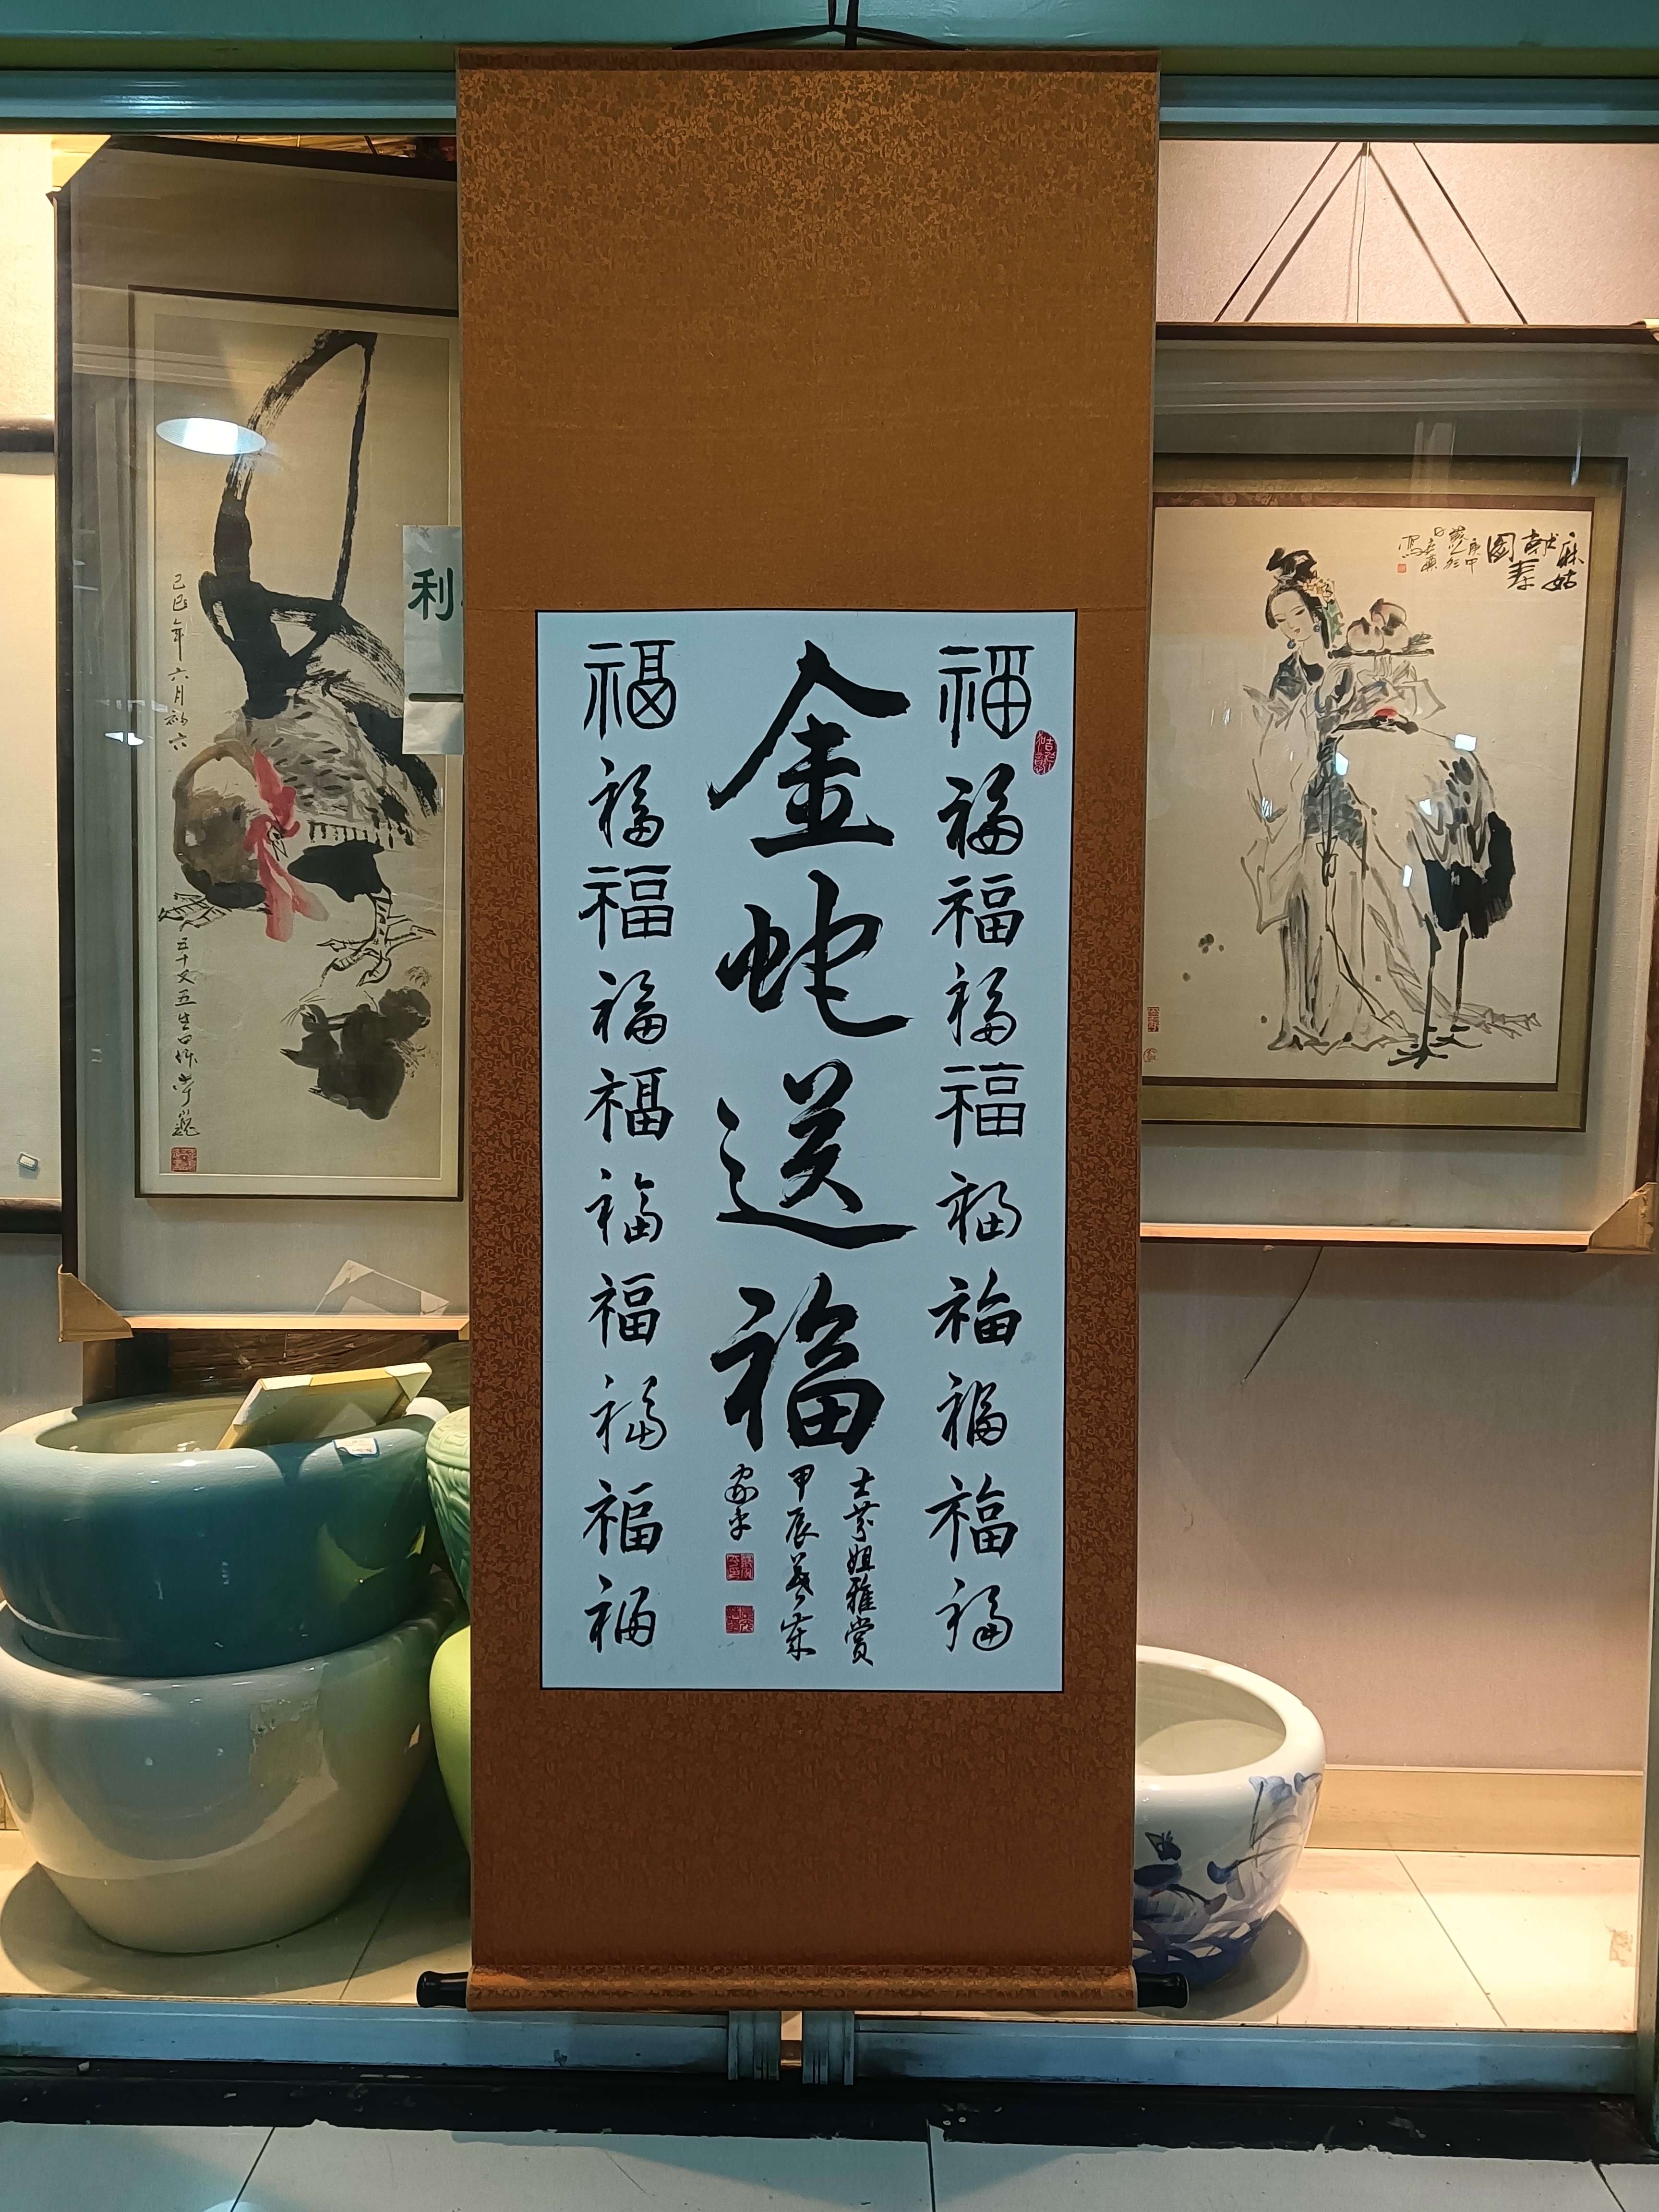 福福福福福福福福福福
金蛇送福
士芬姐雅赏
甲辰
家平
福福福福福福福福福福
麻姑
献寿
圖
庚申
己巳年六月初六
五十又五生日作
利